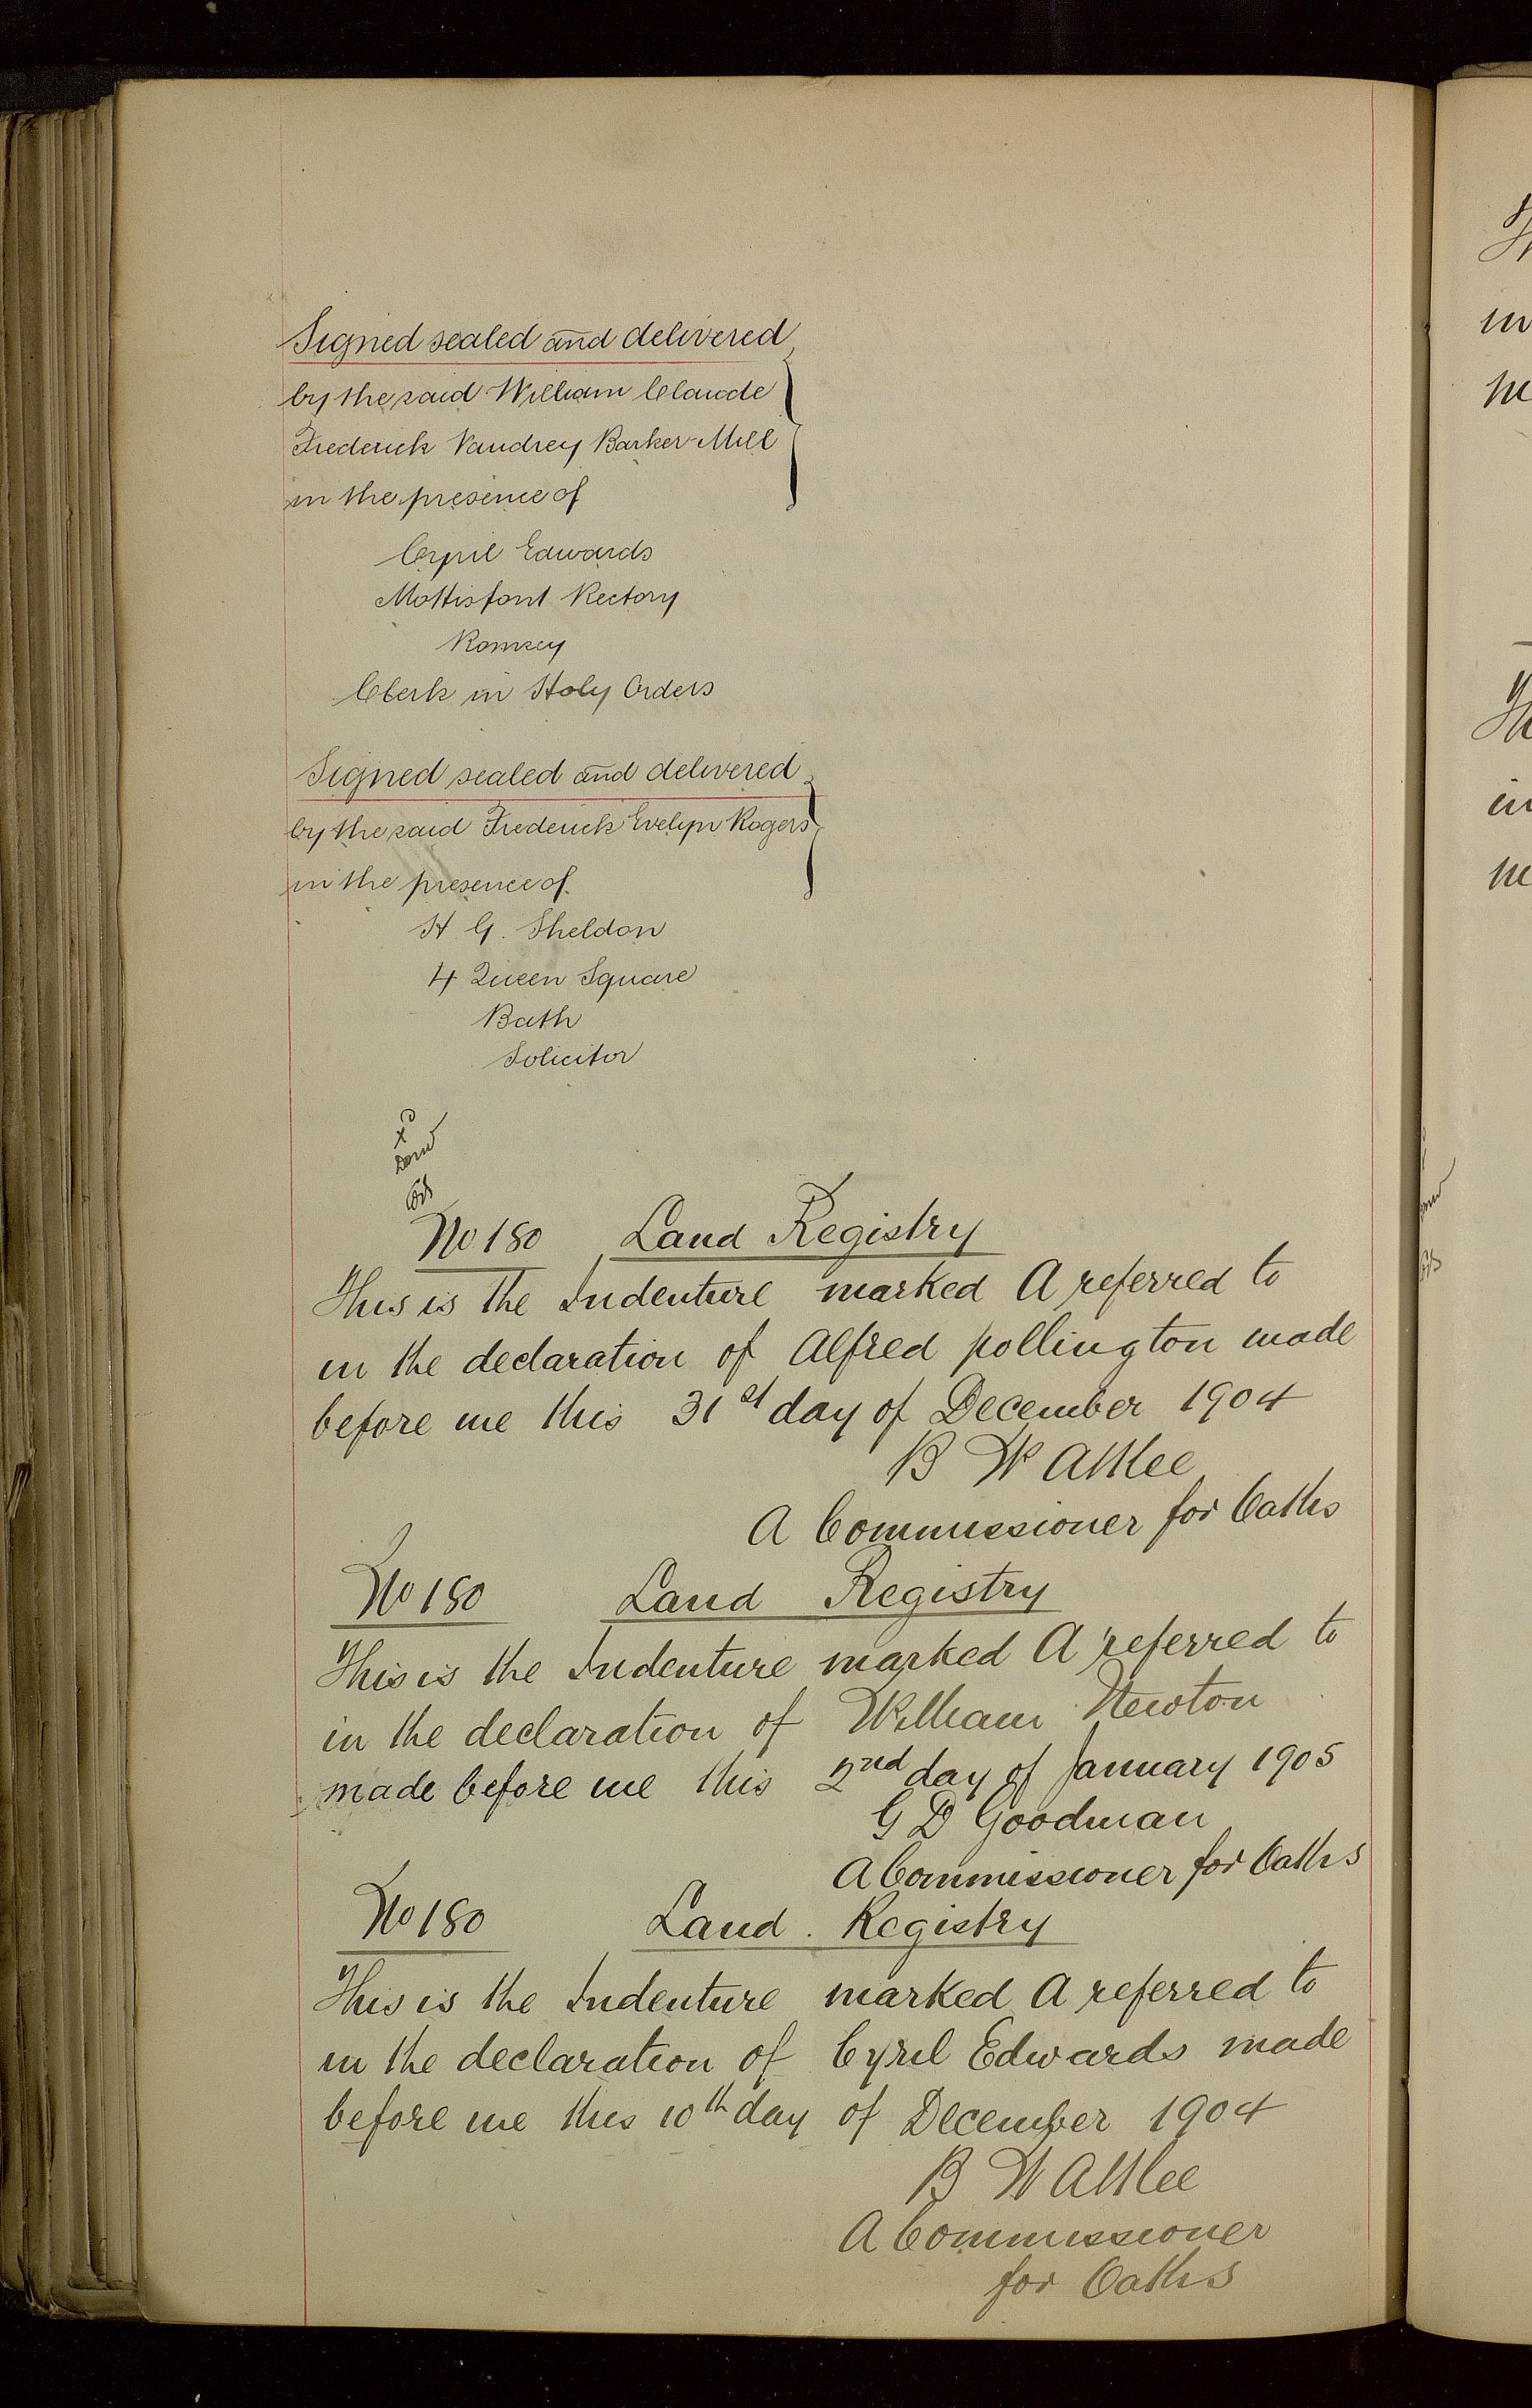 Signed sealed and delivered
by the said William Claude
Frederick Vaudrey Barker-Mill
in the presence of
Cyril Edwards
Mottisfont Rectory
Romsey
Clerk in Holy Orders
Signed sealed and delivered
by the said Frederick Evelyn Rogers
in the presence of
H G. Sheldon
4 Queen Square
Bath
Solicitor
No 180 Land Registry
This is the Indenture marked A referred to
in the declaration of Alfred pollington made
before me this 31st day of December 1904
B W Attlee
A Commissioner for Oaths
No 180 Land Registry
This is the Indenture marked A referred to
in the declaration of William Newton
made before me this 2nd day of January 1905
G D Goodman
A Commissioner for Oaths
No 180 Land Registry
This is the Indenture marked A referred to
in the declaration of Cyril Edwards made
before me this 10th day of December 1904
B W Attlee
A Commissioner
for Oaths